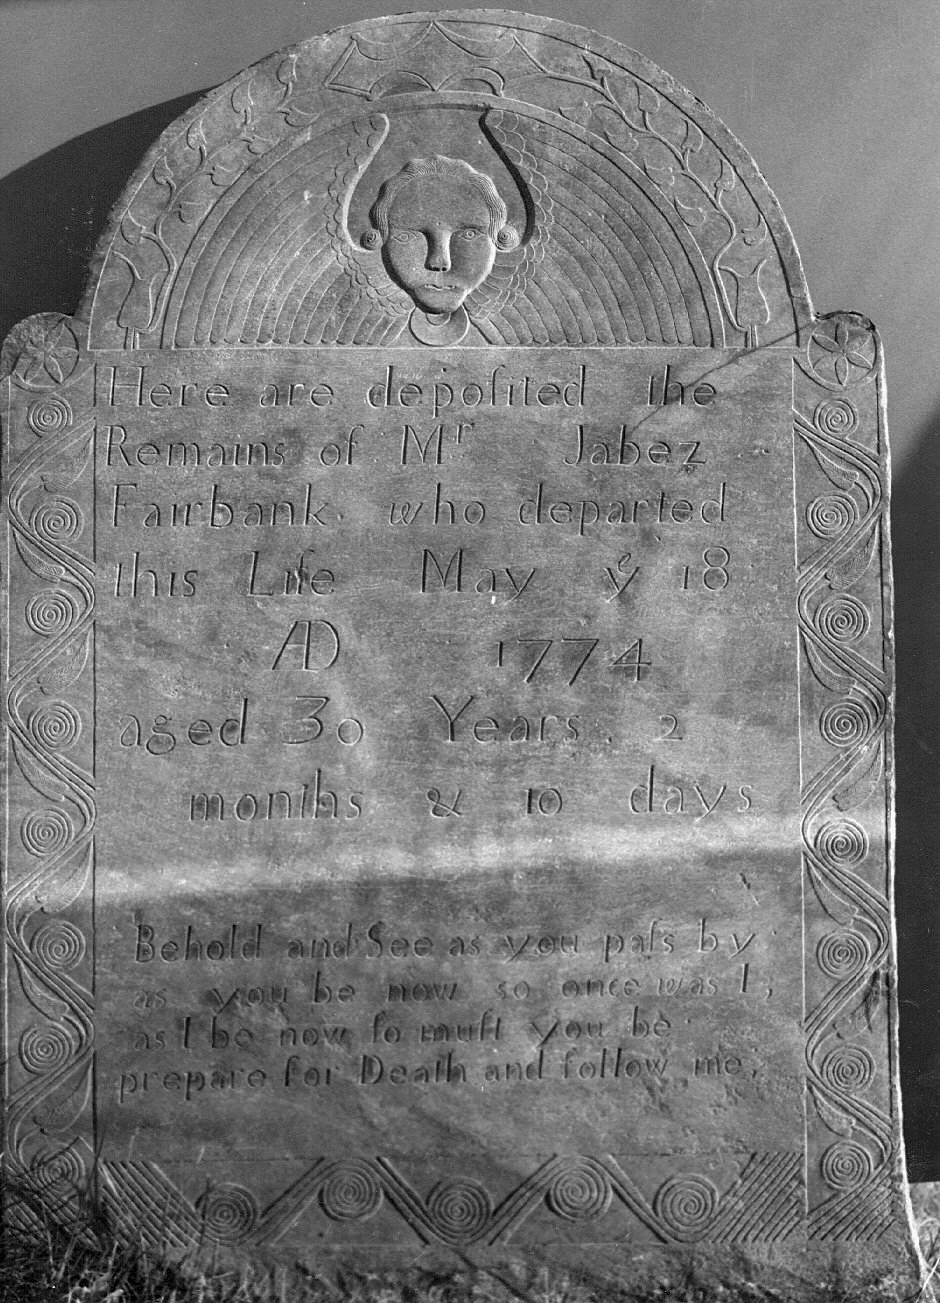 Here are depoſited the
Remains of Mʳ Jabez
Fairbank who departed
this Life May yͤ 18
AD 1774
aged 30 Years . 2
months & 10 days
Behold and See as you paſs by
as you be now so once was I;
as I be now ſo muſt you be
prepare for Death and follow me;